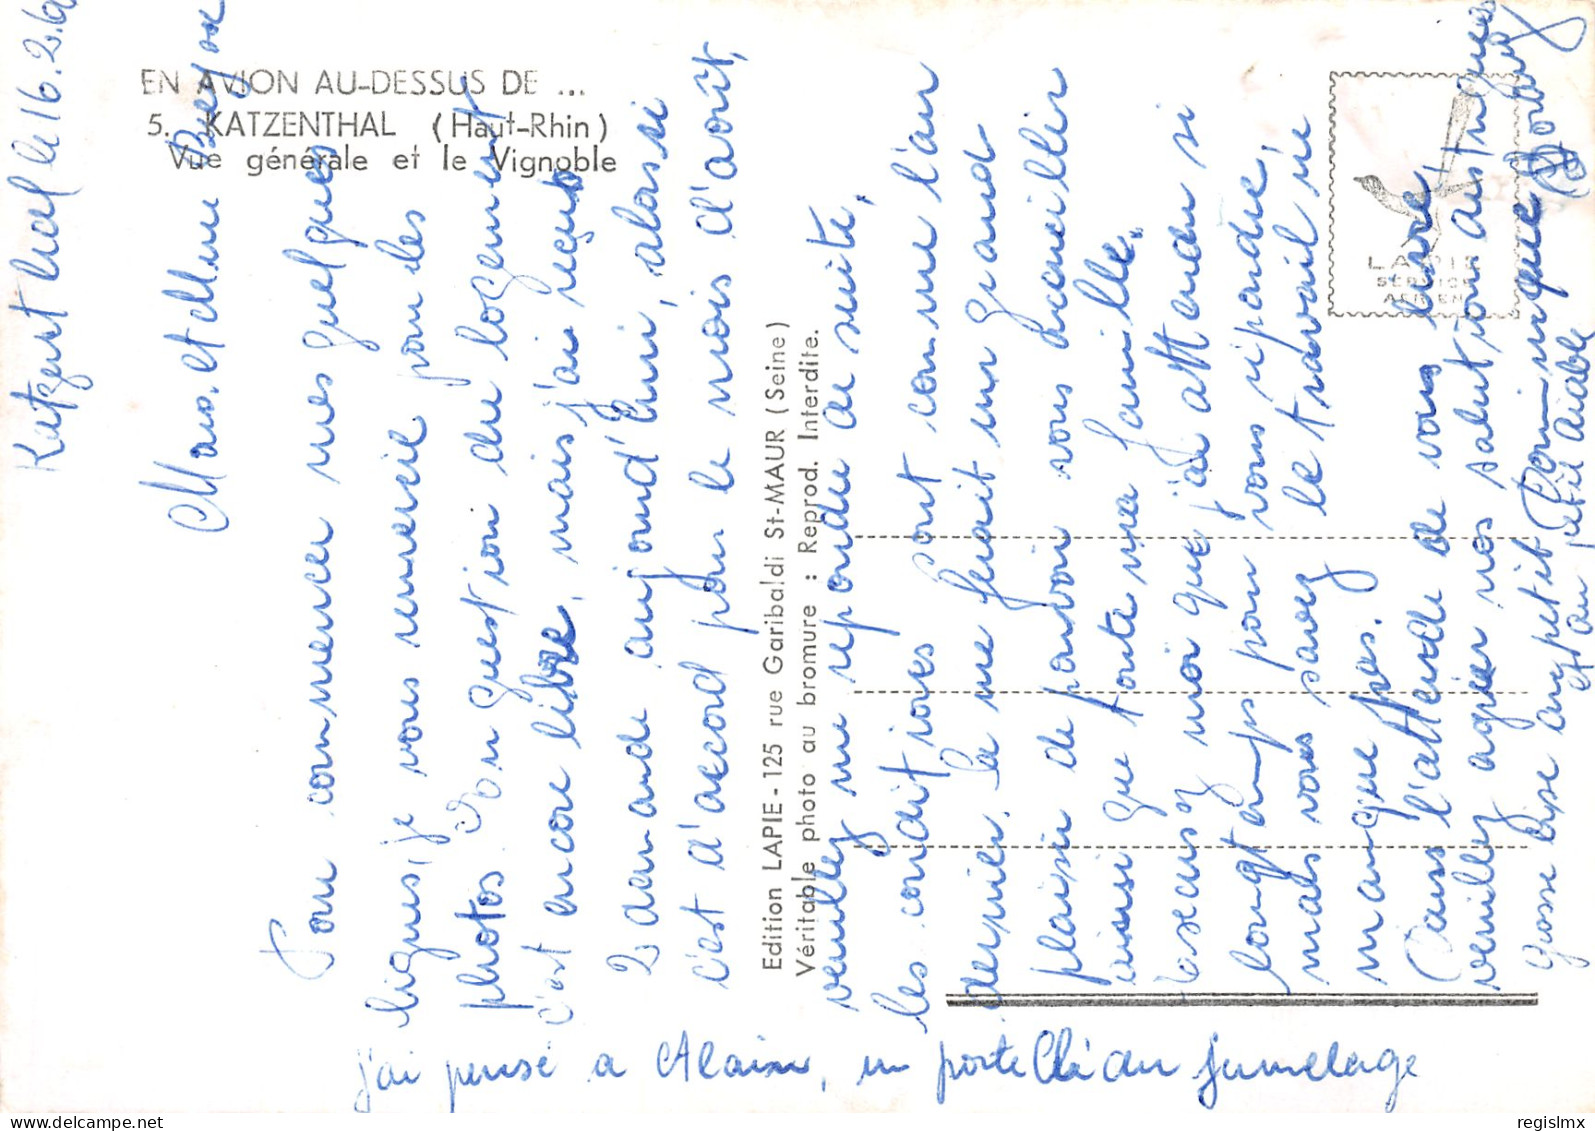 EN AVION AU-DESSUS DE ...
5. KATZENTHAL (Haut-Rhin)
Vue générale et le Vignoble
Edition LAPIE - 125 rue Garibaldi St-MAUR (Seine)
Véritable photo au bromure : Reprod. Interdite.
LAPIE
SERVICE
AERIEN
Katzenthal le 16.2.6
Mons. et Mme
Pour commencer mes quelques
lignes, je vous remercie pour les
photos. Son question du logement
c'est encore libre, mais j'ai reçus
2 demande aujourd'hui, alors si
c'est d'accord pour le mois d'août,
veuillez me repondre de suite,
les conditions sont comme l'an
dernier. Sa me ferait un grand
plaisir de pouvoir vous acceuillir
ainsi que toute ma famille.
Excusez moi que j'ai attendu si
longtemps pour vous répondre,
mais vous savez le travail ne
manque pas.
Dans l'attente de vous lire,
veuillez agréer nos salutations
Grosse bise au petit Dominique
et au petit diable
j'ai pensé a Alain, un porte Clé du jumelage
regislmx